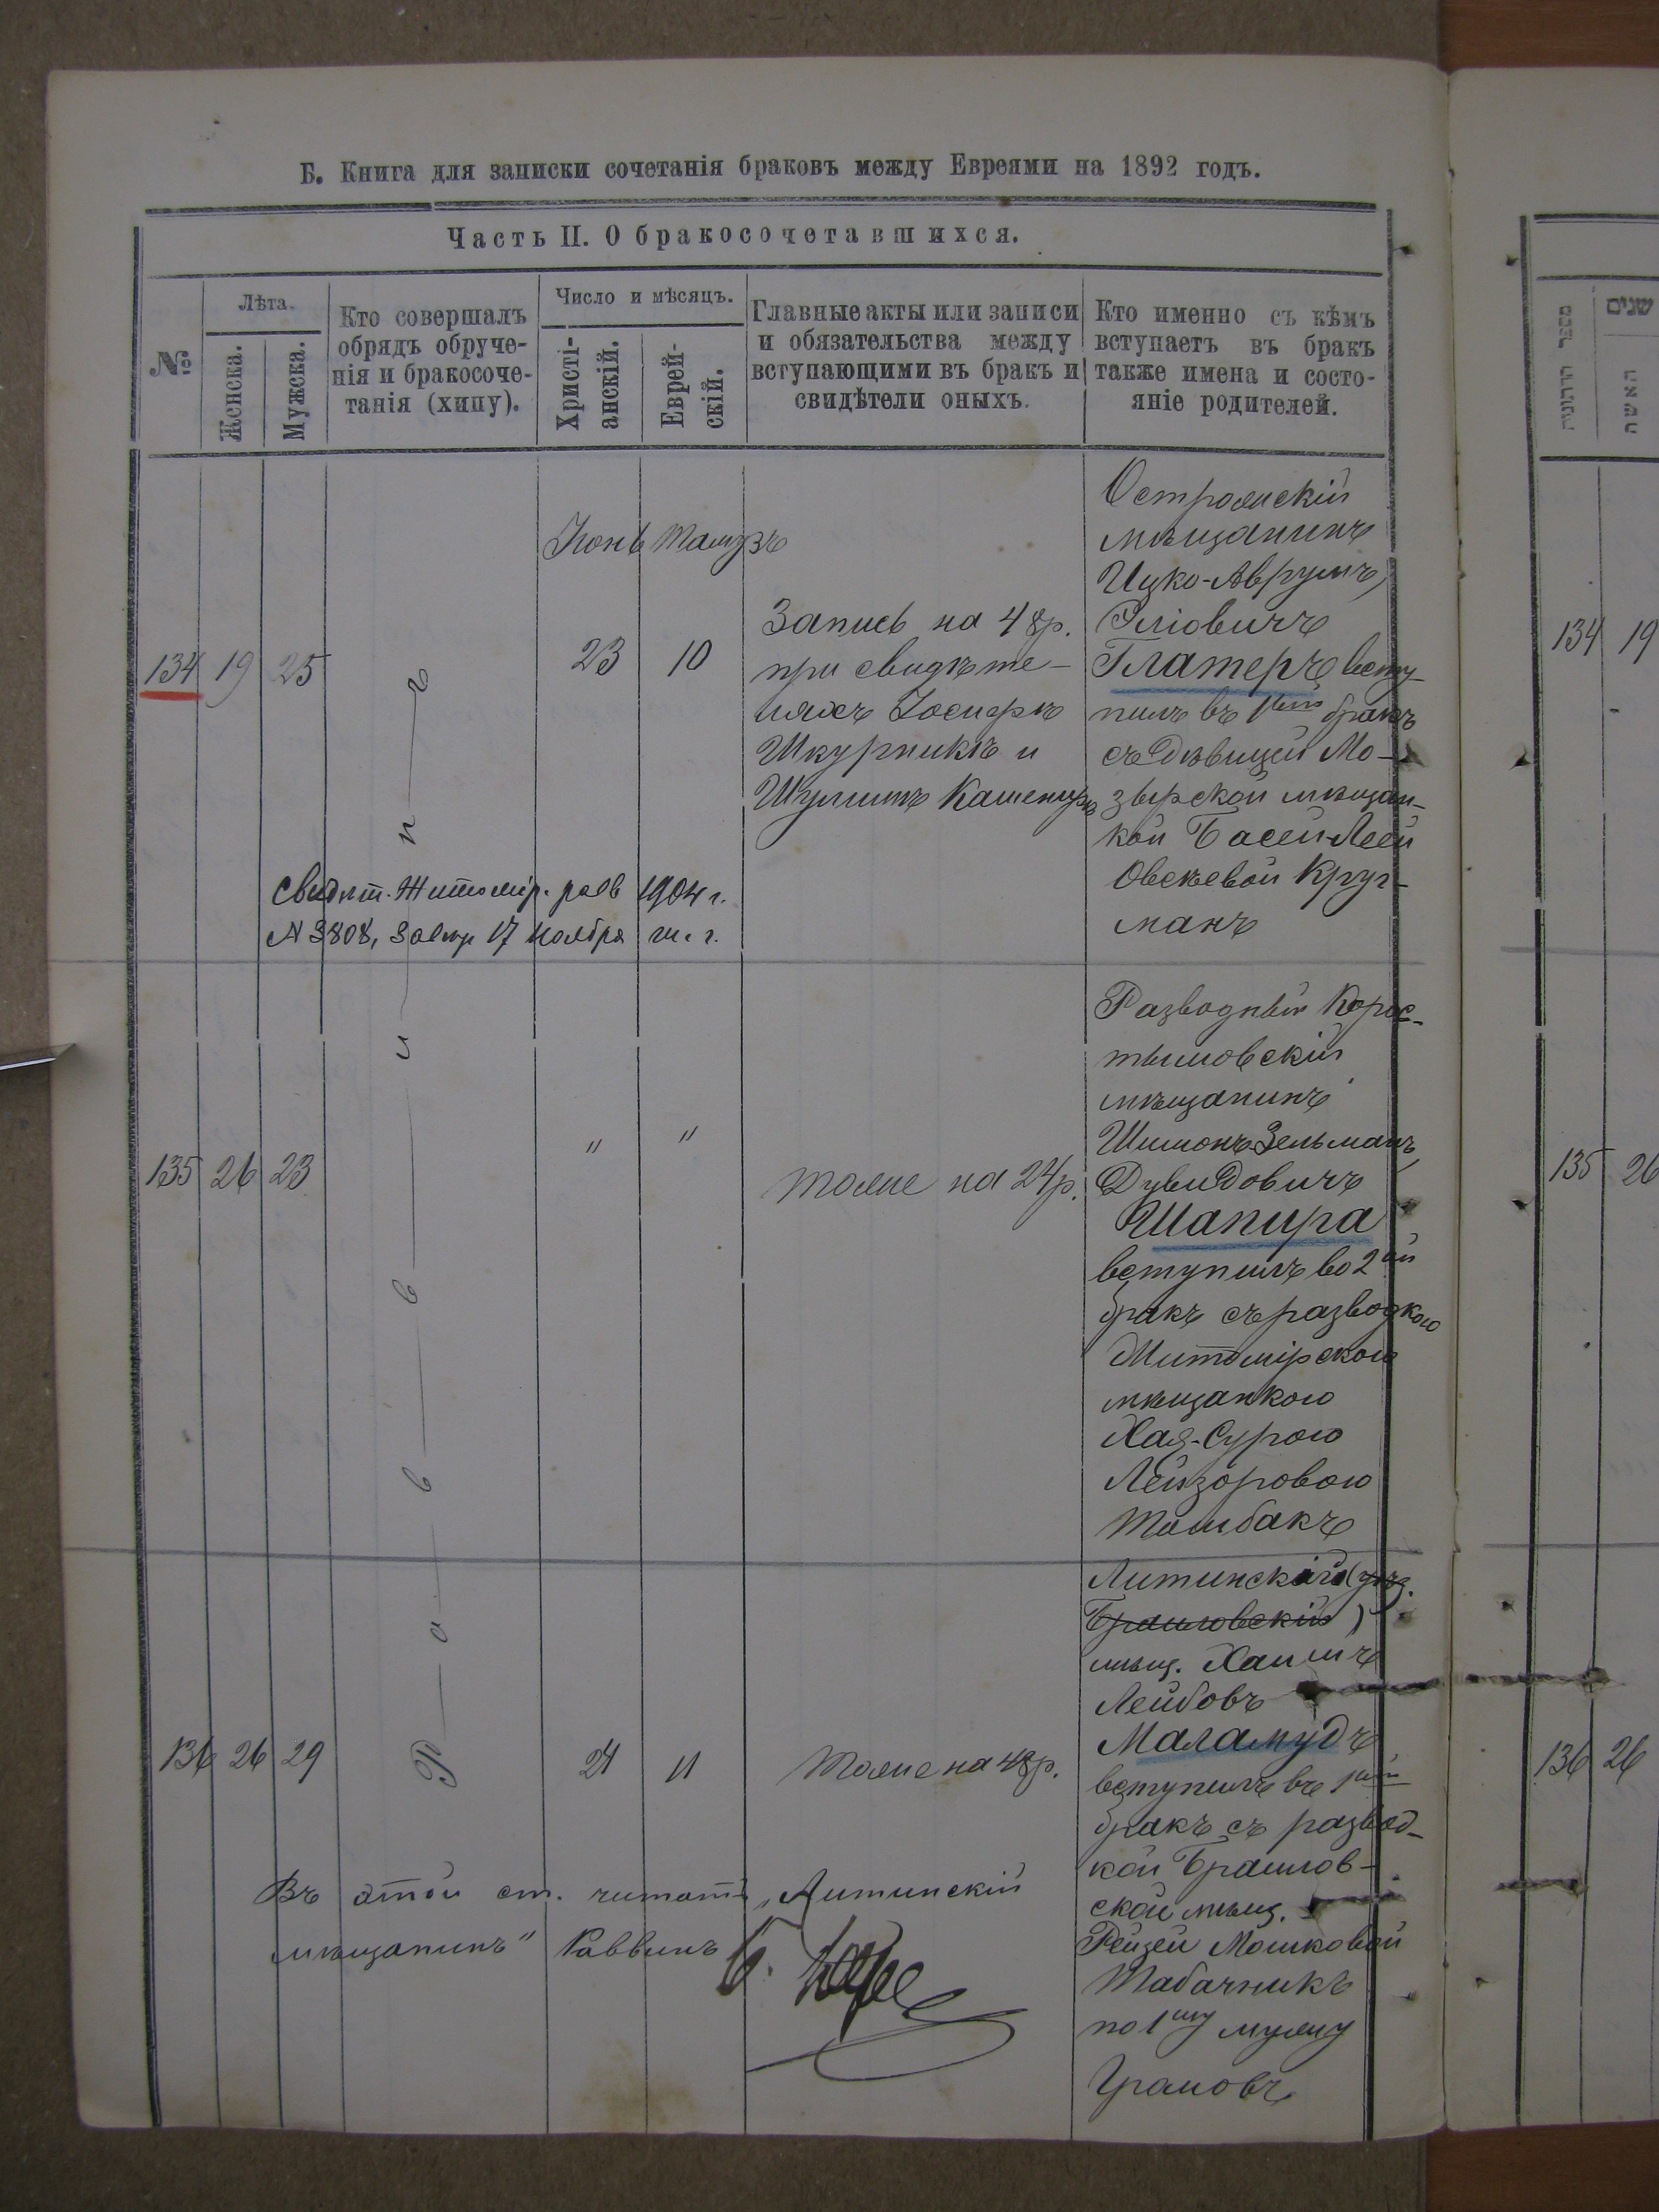 Б. Книга для записки сочетанія браковъ между Евреями на 1892 годъ.
Часть II. О бракосочетавшихся.
№
Лѣта.
Женска.
Мужска.
Кто совершалъ
обрядъ обруче-
нія и бракосоче-
танія (хипу).
Число и мѣсяцъ.
Христі-
анскій.
Еврей-
скій.
Главные акты или записи
и обязательства между
вступающими въ бракъ и
свидѣтели оныхъ.
Кто именно съ кѣмъ
вступаетъ въ бракъ
также имена и состо-
яніе родителей.
Іюнь Тамузъ
134 19 25
Раввинъ
23 10
Запись на 48 р.
при свидѣте-
ляхъ Іосифѣ
Шкурникѣ и
Шулимѣ
мѣщанинъ
Ицко-Аврумъ
Эліовичъ
Глатеръ всту-
пилъ въ 1ый бракъ
съ дѣвицей Мо-
зырской мѣщан-
кой Басей-Леей
Овсѣевой Круг-
манъ
Свидѣт. Житомір. равв 1904 г.
N 3808, 17 ноября т. г.
135 26 23
" "
тоже на 24 р.
Разводный Корос-
тышовскій
мѣщанинъ
Шимонъ-Зельманъ
Дувидовичъ
Шапира
вступилъ во 2ой
бракъ съ разводкою
Житомірскою
мѣщанкою
Хая-Сурою
Лейзоровою
136 26 29
24 11
тоже на 48 р.
Литинскій
Браиловскій)
мѣщ. Хаимъ
Лейбовъ
Маламудъ
вступилъ въ 1ый
бракъ съ развод-
кой Браилов-
ской мѣщ.
Рейзей Мошковой
Табачникъ
по 1му мужу
Въ этой ст. читать „Литинскій
мѣщанинъ" Раввинъ
שנים
האשה
134 19
135 26
136 26